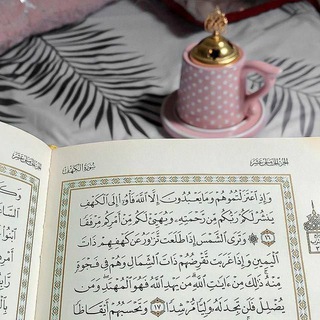 سُورَةُ الكَهْفِ
وَإِذِ ٱعْتَزَلْتُمُوهُمْ وَمَا يَعْبُدُونَ إِلَّا ٱللَّهَ فَأْوُۥٓا۟ إِلَى ٱلْكَهْفِ
يَنشُرْ لَكُمْ رَبُّكُم مِّن رَّحْمَتِهِۦ وَيُهَيِّئْ لَكُم مِّنْ أَمْرِكُم مِّرْفَقًا
١٦ وَتَرَى ٱلشَّمْسَ إِذَا طَلَعَت تَّزَٰوَرُ عَن كَهْفِهِمْ ذَاتَ
ٱلْيَمِينِ وَإِذَا غَرَبَت تَّقْرِضُهُمْ ذَاتَ ٱلشِّمَالِ وَهُمْ فِى فَجْوَةٍ
مِّنْهُ ذَٰلِكَ مِنْ ءَايَٰتِ ٱللَّهِ مَن يَهْدِ ٱللَّهُ فَهُوَ ٱلْمُهْتَدِ وَمَن
يُضْلِلْ فَلَن تَجِدَ لَهُۥ وَلِيًّا مُّرْشِدًا ١٧ وَتَحْسَبُهُمْ أَيْقَاظًا